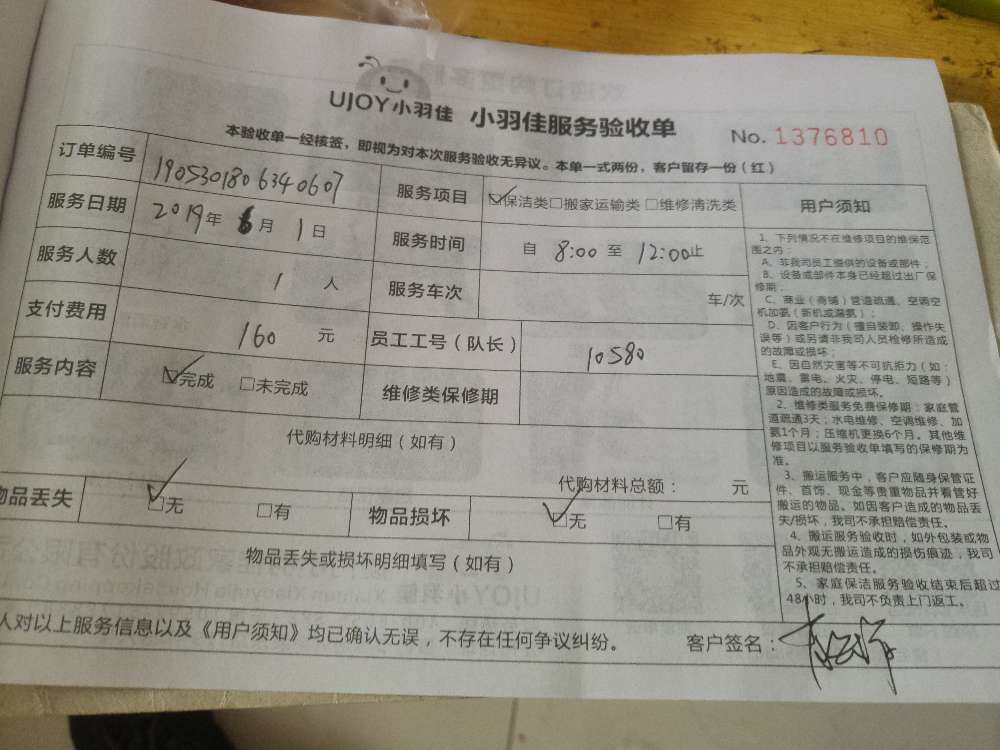 UJOY小羽佳 小羽佳服务验收单 No. 1376810
本验收单一经核签，即视为对本次服务验收无异议。本单一式两份，客户留存一份（红）
订单编号 1905301806340607 服务项目 ☑保洁类□搬家运输类 □维修清洗类 用户须知
服务日期 2019年 6月 1日 服务时间 自 8:00 至 12:00止
服务人数 1 人 服务车次 车/次
支付费用 160 元 员工工号（队长） 10580
服务内容 ☑完成 □未完成 维修类保修期
代购材料明细（如有）
代购材料总额： 元
物品丢失 ☑无 □有 物品损坏 ☑无 □有
物品丢失或损坏明细填写（如有）
1、下列情况不在维修项目的维保范
围之内：
A、非我司员工提供的设备或部件；
B、设备或部件本身已经超过出厂保
修期；
C、商业（商铺）管道疏通、空调空
机加氨（新机或漏氨）；
D、因客户行为（擅自装卸、操作失
误等）或另请非我司人员检修所造成
的故障或损坏；
E、因自然灾害等不可抗拒力（如：
地震、雷电、火灾、停电、短路等）
原因造成的故障或损坏。
2、维修类服务免费保修期：家庭管
道疏通3天；水电维修、空调维修、加
氨1个月；压缩机更换6个月。其他维
修项目以服务验收单填写的保修期为
准。
3、搬运服务中，客户应随身保管证
件、首饰、现金等贵重物品并看管好
搬运的物品。如因客户造成的物品丢
失/损坏，我司不承担赔偿责任。
4、搬运服务验收时，如外包装或物
品外观无搬运造成的损伤痕迹，我司
不承担赔偿责任。
5、家庭保洁服务验收结束后超过
48小时，我司不负责上门返工。
人对以上服务信息以及《用户须知》均已确认无误，不存在任何争议纠纷。 客户签名：